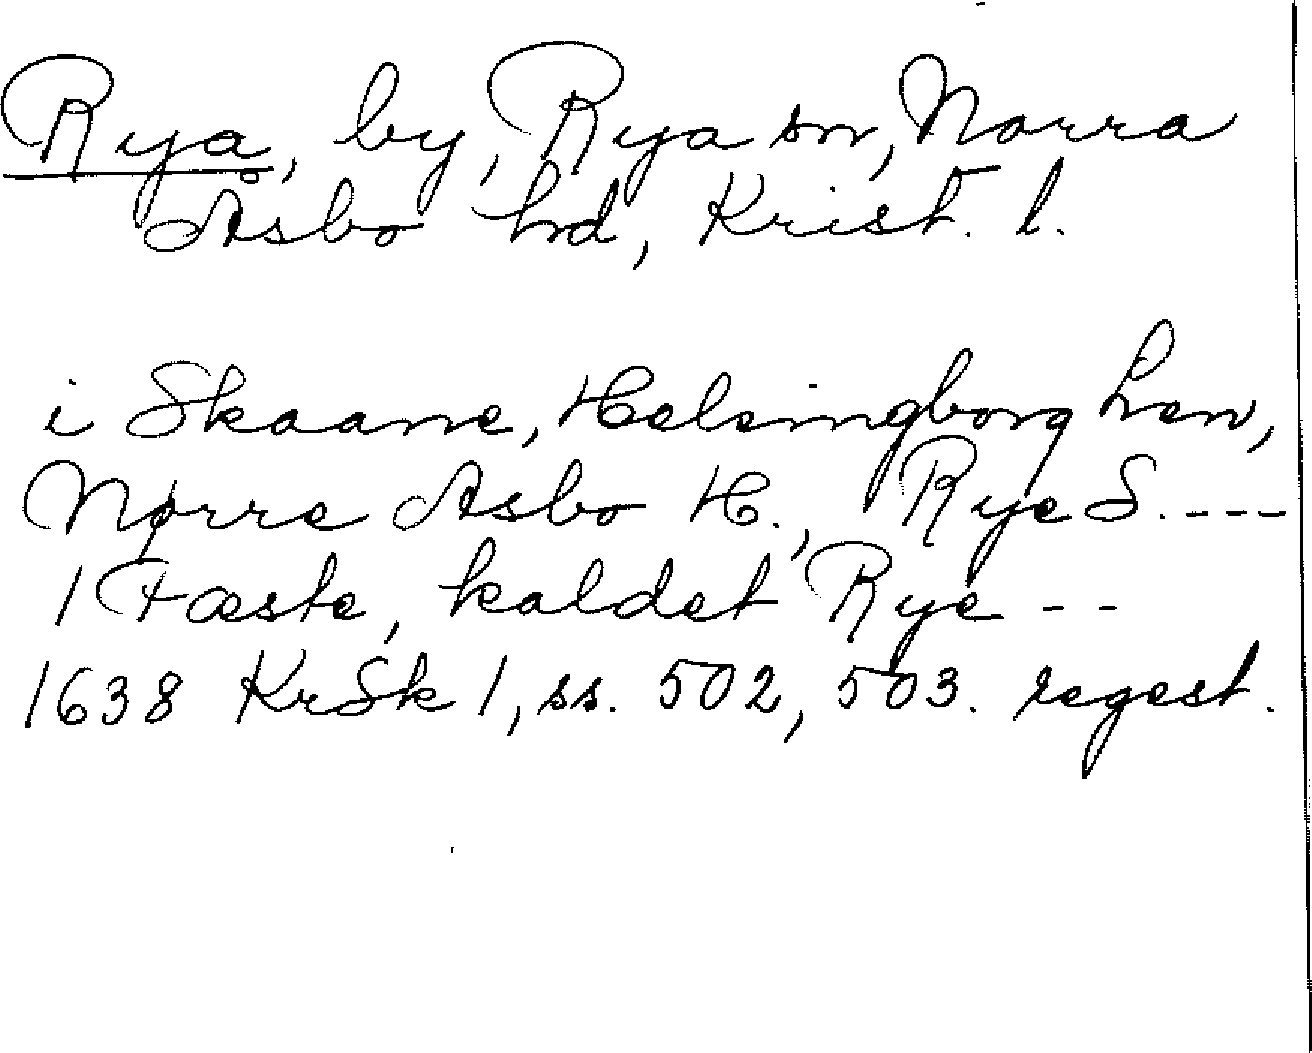 Rya, by, Rya sn, Norra
Åsbo hd, Krist. l.
i Skaane, Helsingborg Len,
Nørre Asbo H., Rye S. ----
1 Fæste, kaldet Rye - -
1638 KrSk 1, ss. 502, 503. regest.